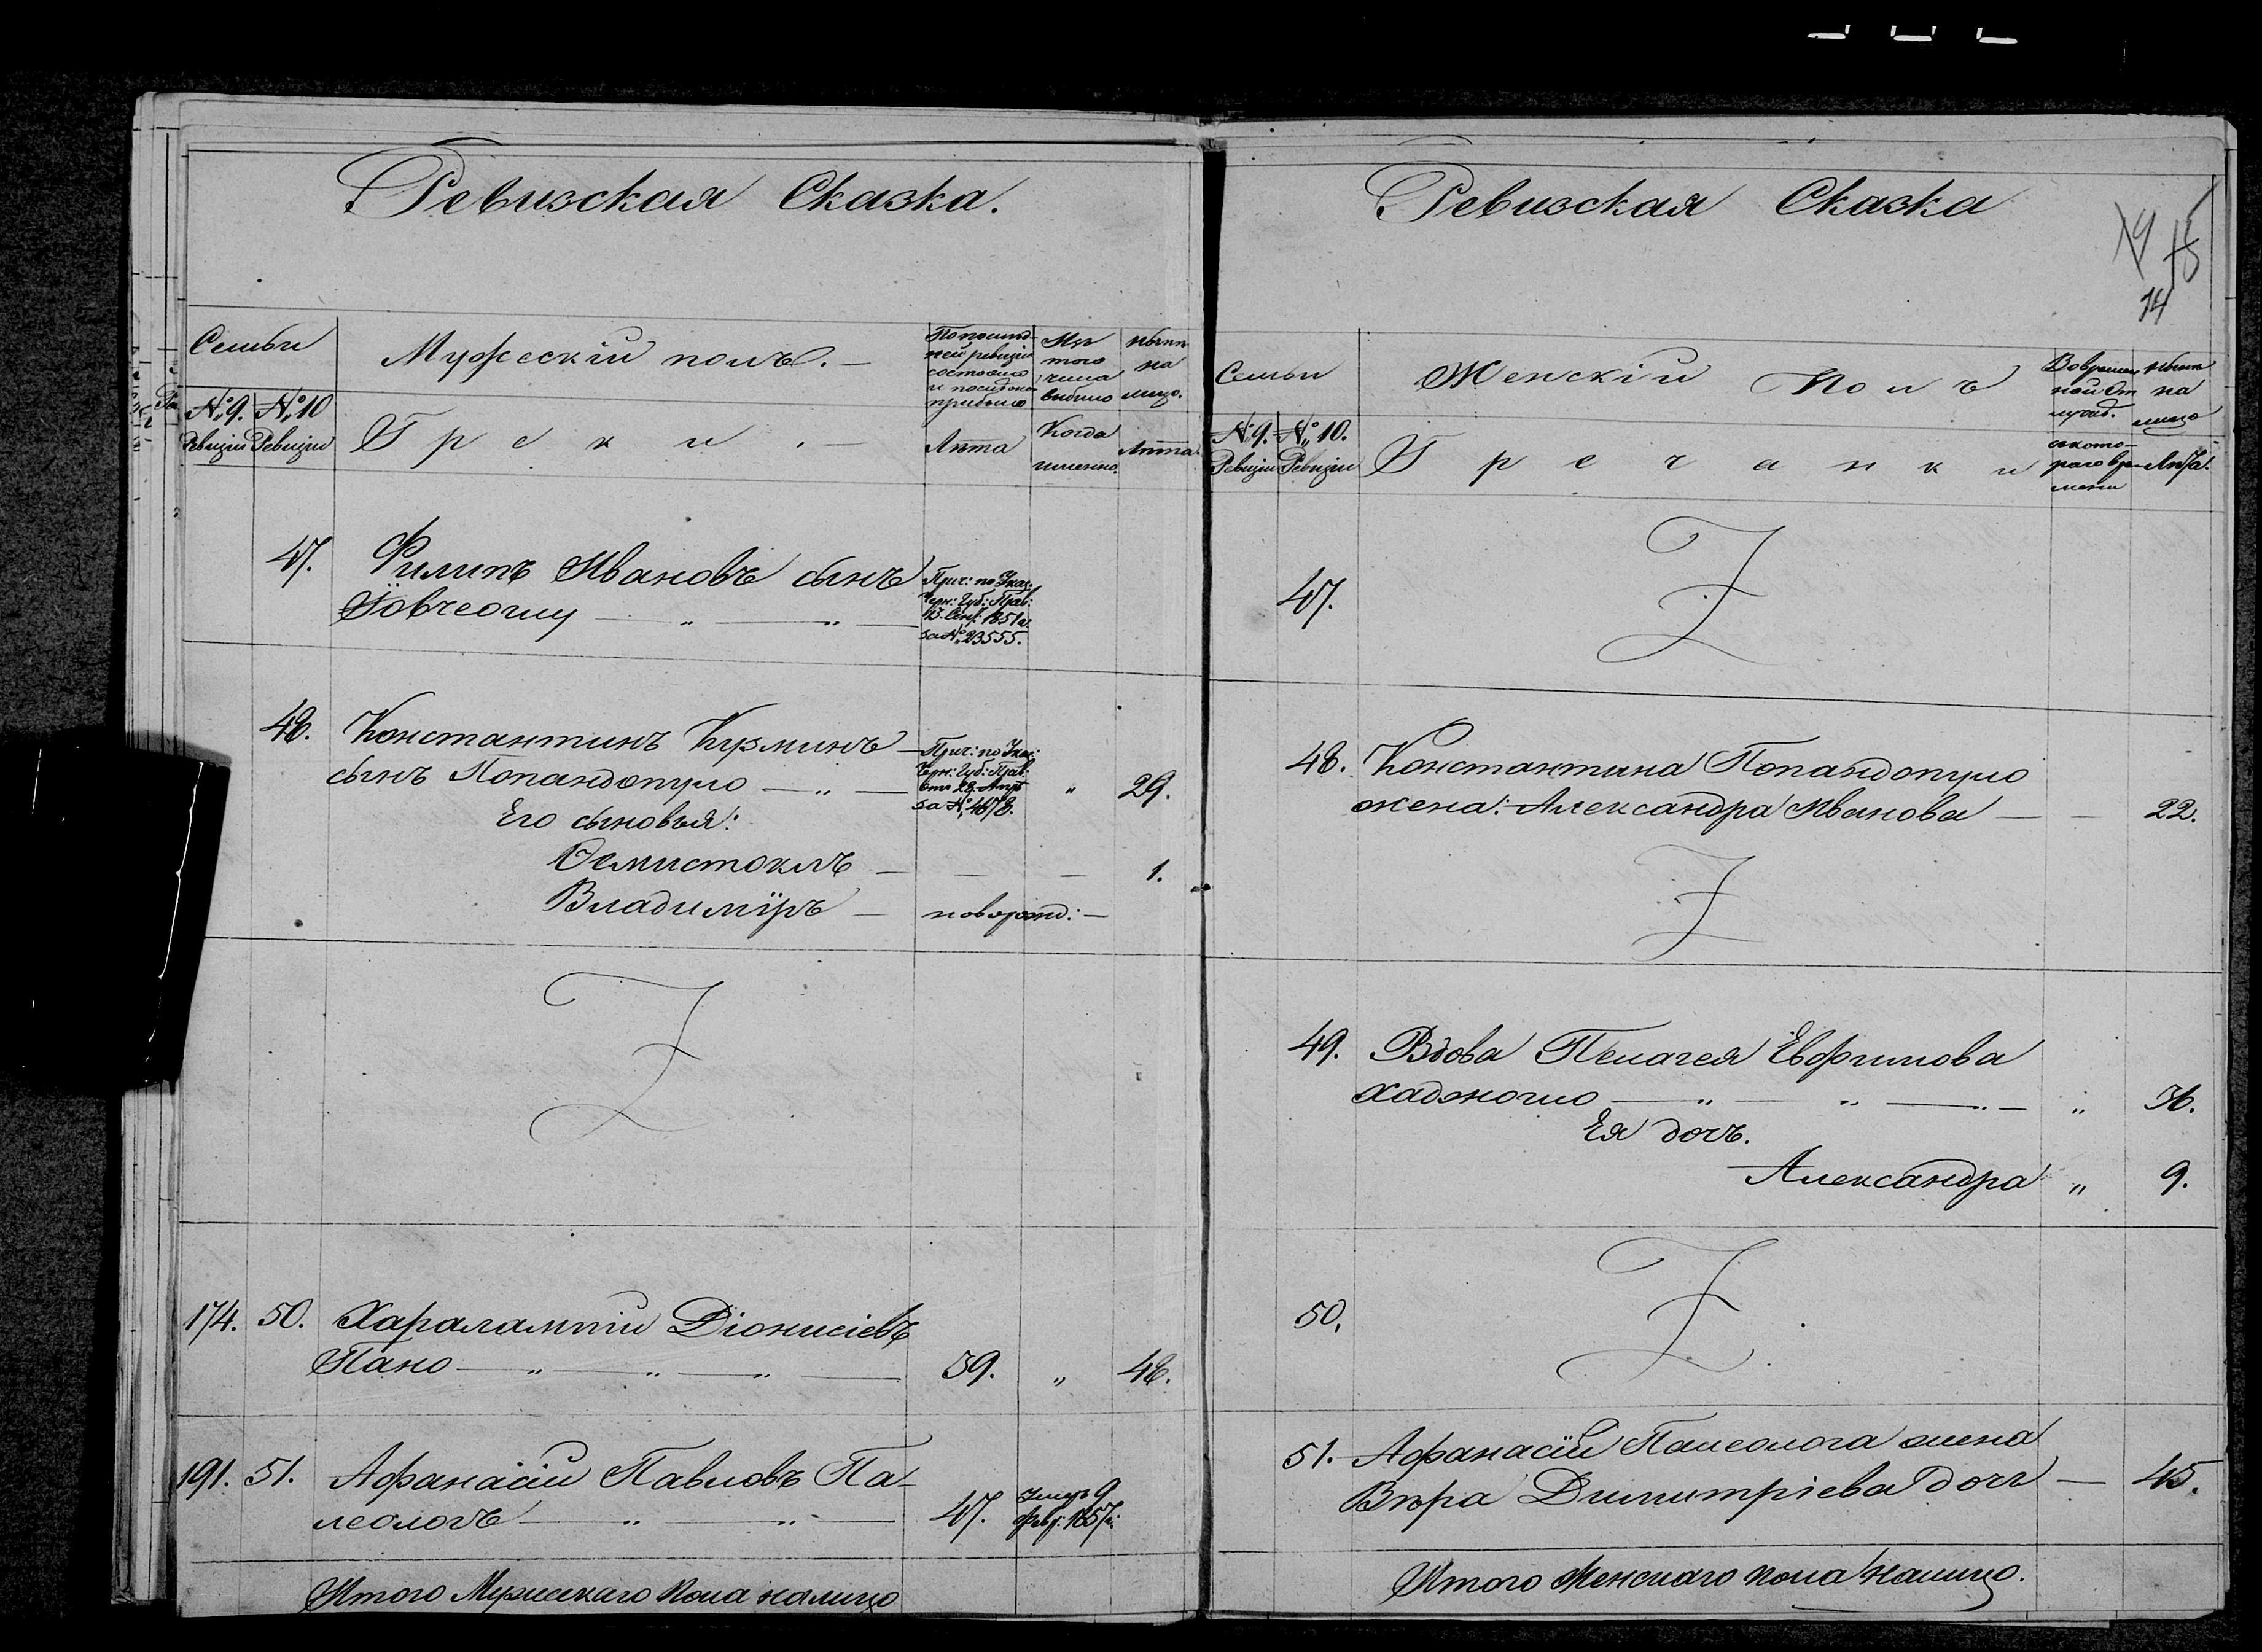 Ревизская Сказка.
Семьи
Мужескій полъ. —
По послед-
ней ревизіи
состояло
и после того
прибыло
Изъ
того
числа
выбыло
нынѣ
на
лицо.
№ 9. № 10
Ревизіи Ревизіи
Греки. —
Лѣта
Когда
именно.
Лѣта
47. Филипъ Ивановъ сынъ
Прич: по Указ:
Черн: Губ: Прав:
1851 г.
за № 23555.
48. Константинъ Кузминъ —
сынъ Попандопуло — „ — „ 29.
Прич: по Указ:
Черн: Губ: Прав:
за № 4678.
Его сыновья:
Ѳемистоклъ — — — 1.
Владиміръ — новорожд: —
174. 50. Харалампій Діонисіевъ
Пано — „ — „ — „ — 39. „ 48.
191. 51. Афанасій Павловъ Па-
леологъ — „ — „ — 47.
Умеръ 9
Февр: 1857 г:
Итого Мужескаго пола налицо
Ревизская Сказка
14
Семьи
Женскій Полъ
Во времен
ной от
лучкѣ.
нынѣ
на
лицо
№ 9. № 10.
Ревизіи Ревизіи
Гречанки
съ кото-
раго вре-
мени
Лѣта.
47.
48. Константина Попандопуло
жена: Александра Иванова — — 22.
49. Вдова Пелагея Евфимова
Хаджогло — „ — „ — „ — „ 36.
Ея дочь.
Александра „ 9.
50.
51. Афанасія Палеолога жена
Вѣра Димитріева дочь — 45.
Итого Женскаго пола налицо.